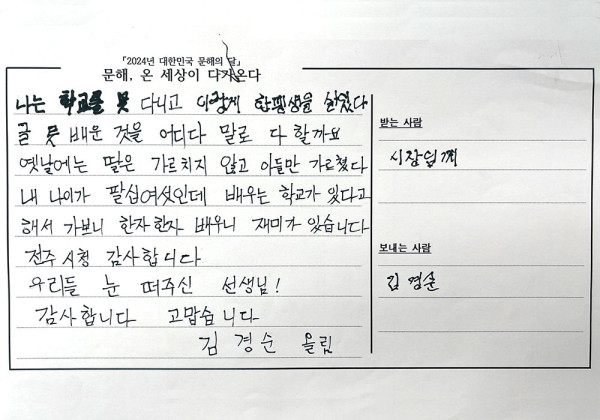 「2024년 대한민국 문해의 달」
문해, 온 세상이 다가온다
나는 학교를 못 다니고 이렇게 한평생을 살았다
글 못 배운 것을 어디다 말로 다 할까요
옛날에는 딸은 가르치지 않고 아들만 가르쳤다
내 나이가 팔십여섯인데 배우는 학교가 있다고
해서 가보니 한자한자 배우니 재미가 있습니다
전주시청 감사합니다
우리들 눈 떠주신 선생님!
감사합니다 고맙습니다
김경순 올림
받는 사람
시장님께
보내는 사람
김경순